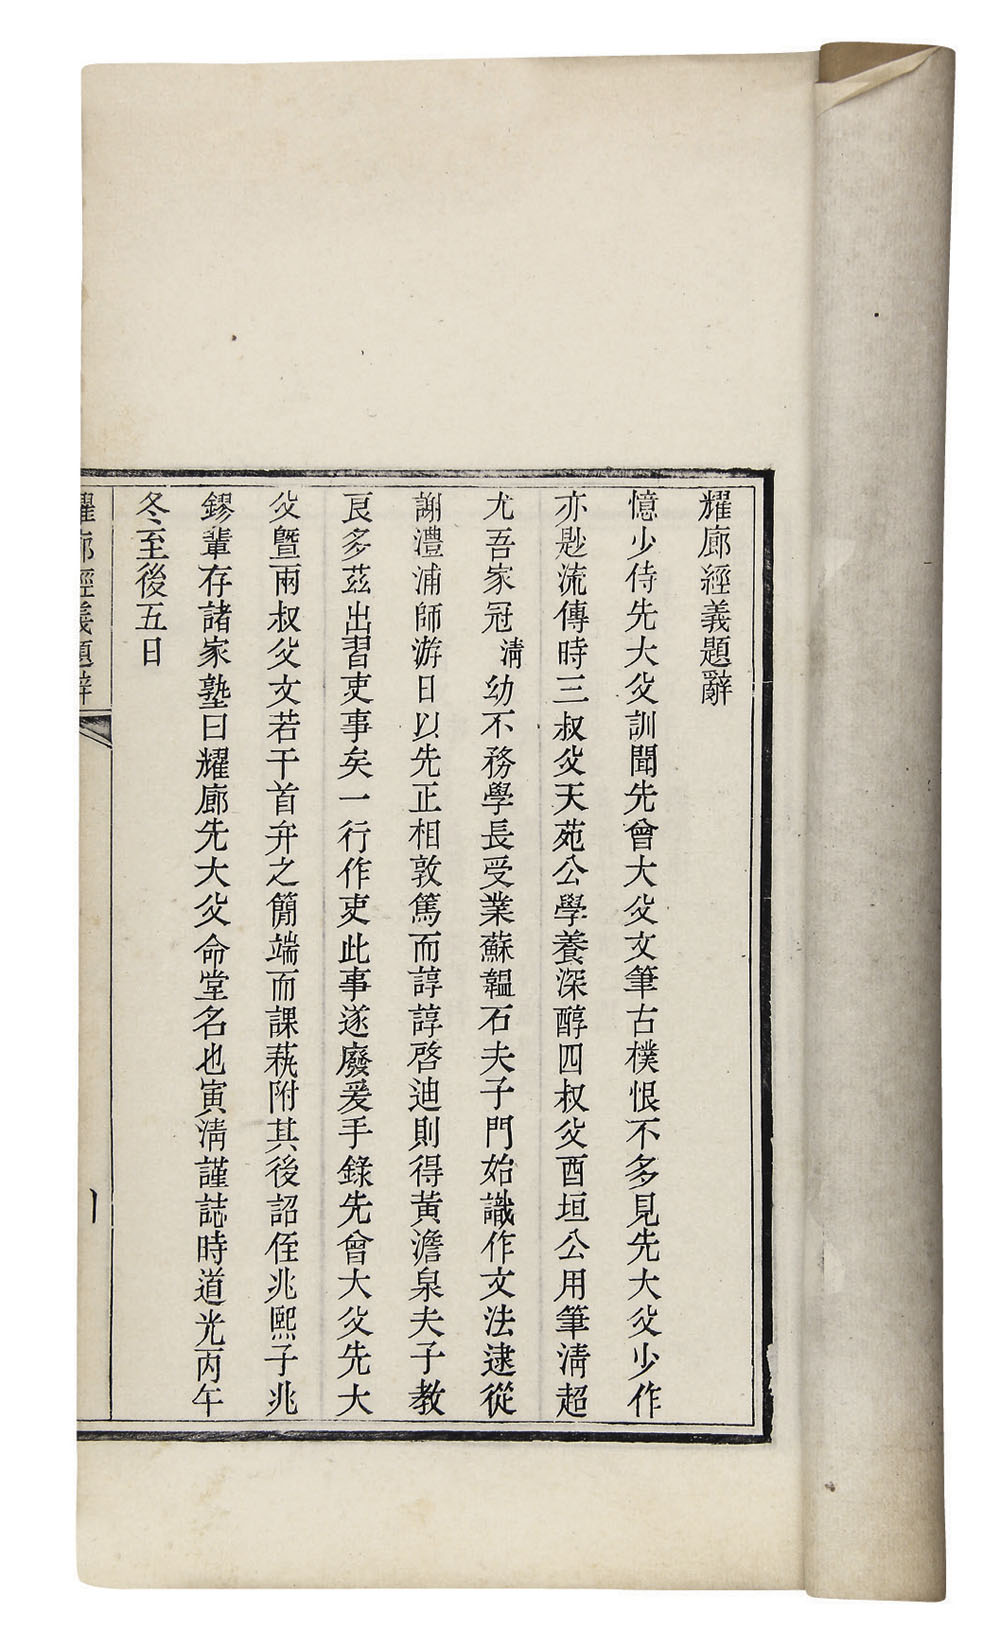 耀廊經義題辭
憶少侍先大父訓聞先曾大父文筆古樸恨不多見先大父少作
亦尟流傳時三叔父天苑公學養深醇四叔父酉垣公用筆清超
尤吾家冠清幼不務學長受業蘇韞石夫子門始識作文法逮從
謝澧浦師游日以先正相敦篤而諄諄啓迪則得黃澹泉夫子教
良多茲出習吏事矣一行作吏此事遂廢爰手錄先曾大父先大
父暨兩叔父文若干首弁之簡端而課蓺附其後詔侄兆熙子兆
鏐輩存諸家塾曰耀廊先大父命堂名也寅清謹誌時道光丙午
冬至後五日
耀廊經義題辭
一